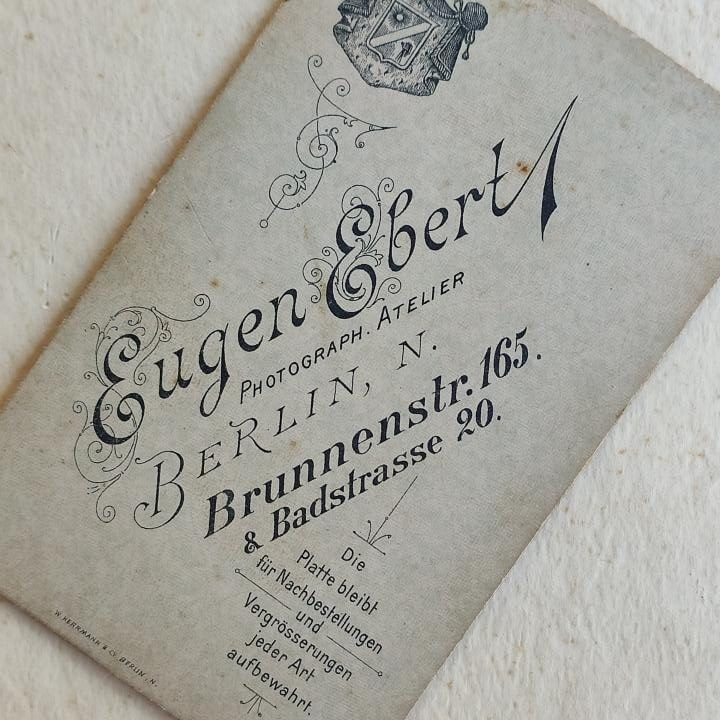 Eugen Ebert
PHOTOGRAPH. ATELIER
BERLIN, N.
Brunnenstr. 165.
& Badstrasse 20.
Die
Platte bleibt
für Nachbestellungen
und
Vergrösserungen
jeder Art
aufbewahrt.
W. HERRMANN & Co. BERLIN, N.